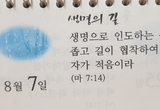 생명의 길
생명으로 인도하는
좁고 길이 협착하여
자가 적음이라
(마 7:14)
8월 7일